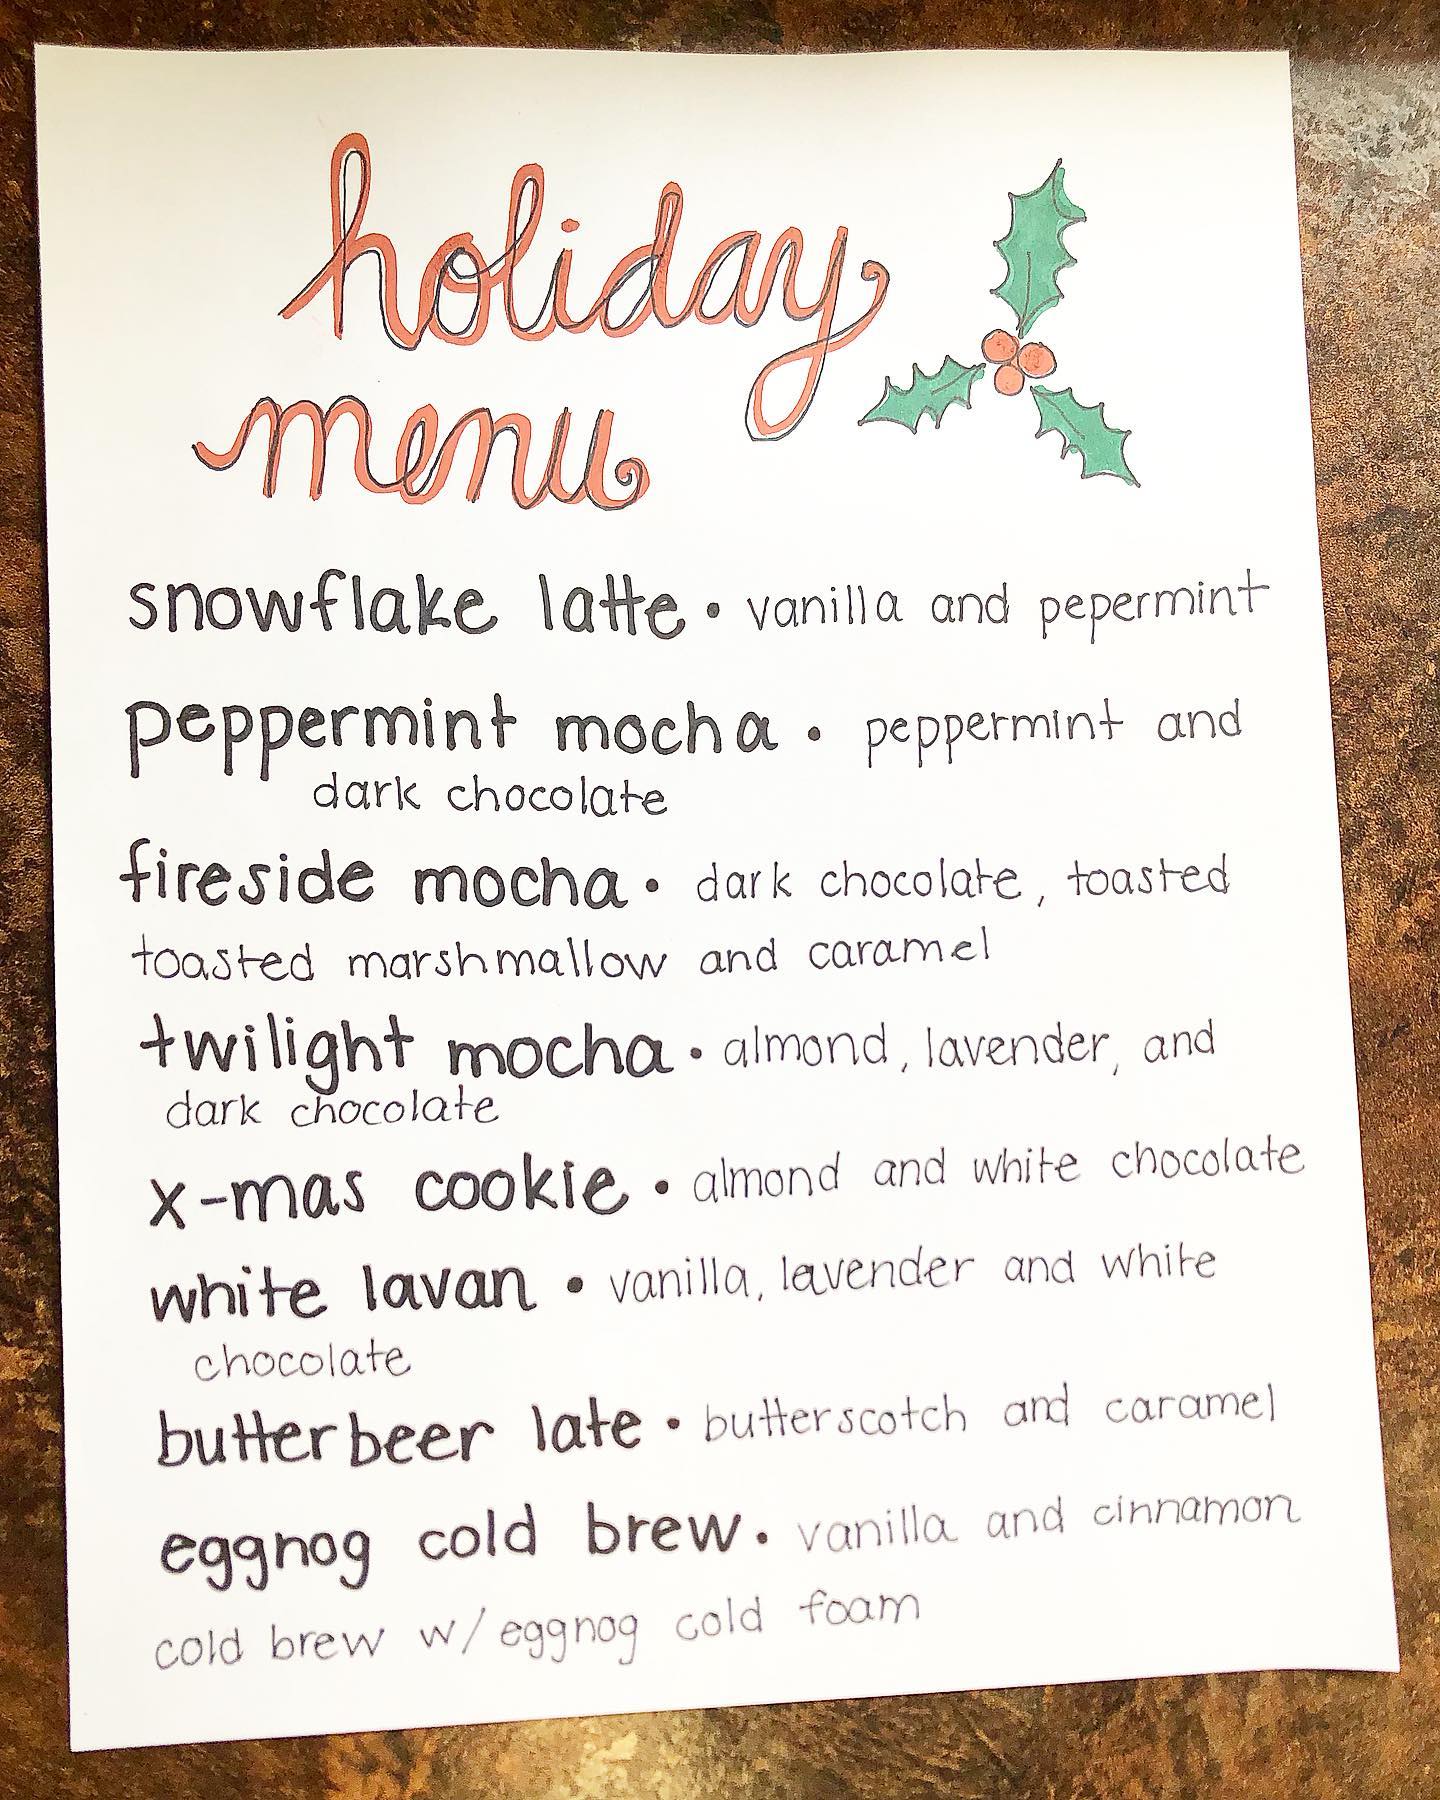 holiday
menu
snowflake latte • vanilla and pepermint
peppermint mocha • peppermint and
dark chocolate
fireside mocha • dark chocolate, toasted
toasted marshmallow and caramel
twilight mocha • almond, lavender, and
dark chocolate
x-mas cookie • almond and white chocolate
white lavan • vanilla, lavender and white
chocolate
butterbeer late • butterscotch and caramel
eggnog cold brew • vanilla and cinnamon
cold brew w/ eggnog cold foam